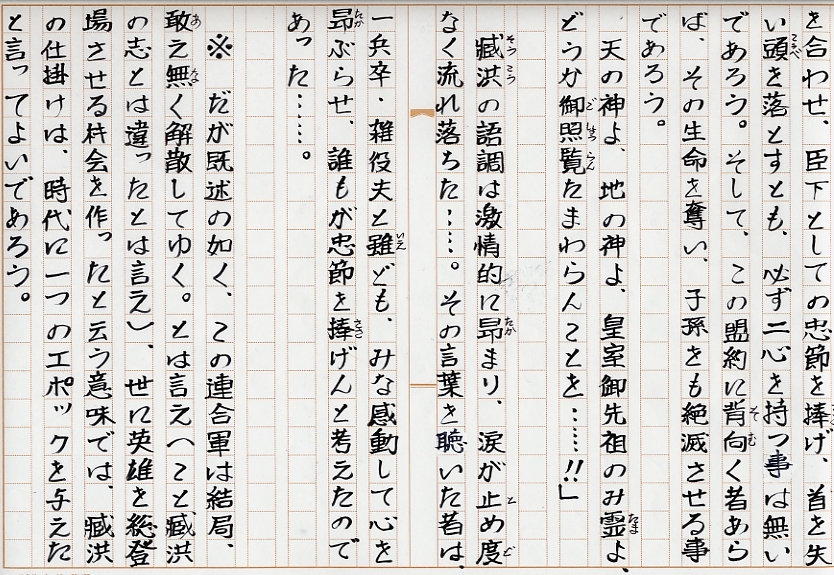 を合わせ、臣下としての忠節を捧げ、首を失
い頭を落とすとも、必ず二心を持つ事は無い
であろう。そして、この盟約に背向く者あら
ば、その生命を奪い、子孫をも絶滅させる事
であろう。
天の神よ、地の神よ、皇室御先祖のみ霊よ、
どうか御照覧たまわらんことを……‼」
臧洪の語調は激情的に昂まり、涙が止め度
なく流れ落ちた……。その言葉を聴いた者は、
一兵卒・雑役夫と雖ども、みな感動して心を
昂ぶらせ、誰もが忠節を捧げんと考えたので
あった……。
※ だが既述の如く、この連合軍は結局、
敢え無く解散してゆく。とは言え(こと臧洪
の志とは違ったとは言え)、世に英雄を総登
場させる杜会を作ったと云う意味では、臧洪
の仕掛けは、時代に一つのエポックを与えた
と言ってよいであろう。